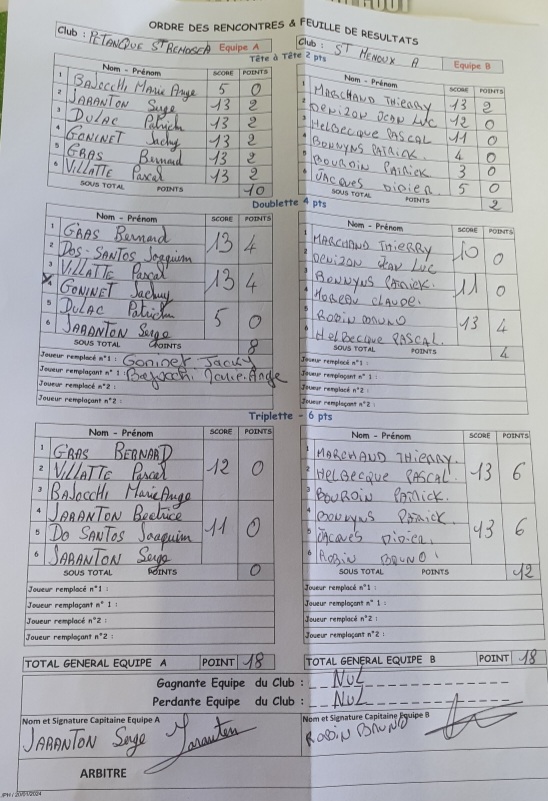 ORDRE DES RENCONTRES & FEUILLE DE RESULTATS
Club : PETANQUE ST REMOSEA Equipe A
Club : ST MENOUX A Equipe B
Tête à Tête 2 pts
Nom - Prénom SCORE POINTS
1 BAJOCCHI Marie Ange 5 0
2 JARANTON Serge 13 2
3 DULAC Patrick 13 2
4 GONINET Jacky 13 2
5 GRAS Bernard 13 2
6 VILLATTE Pascal 13 2
SOUS TOTAL POINTS 10
Nom - Prénom SCORE POINTS
1 MARCHAND THIERRY 13 2
2 DENIZON JEAN LUC 12 0
3 HELBECQUE PASCAL 11 0
4 BONNYNS PATRICK. 4 0
5 BOURDIN PATRICK 3 0
6 JACQUES DIDIER. 5 0
SOUS TOTAL POINTS 2
Doublette 4 pts
Nom - Prénom SCORE POINTS
1 GRAS Bernard 13 4
2 DOS-SANTOS Joaquim
3 VILLATTE Pascal 13 4
4 GONINET Jacky
5 DULAC Patrick 5 0
6 JARANTON Serge
SOUS TOTAL POINTS 8
Joueur remplacé n°1 : Goninet Jacky
Joueur remplaçant n°1 : Bajocchi Marie-Ange
Joueur remplacé n°2 :
Joueur remplaçant n°2 :
Nom - Prénom SCORE POINTS
1 MARCHAND THIERRY 10 0
2 DENIZON JEAN LUC
3 BONNYNS PATRICK. 11 0
4 MOREAU CLAUDE.
5 ROBIN BRUNO 13 4
6 HELBECQUE PASCAL.
SOUS TOTAL POINTS 4
Joueur remplacé n°1 :
Joueur remplaçant n° 1 :
Joueur remplacé n°2 :
Joueur remplaçant n°2 :
Triplette - 6 pts
Nom - Prénom SCORE POINTS
1 GRAS BERNARD 12 0
2 VILLATTE Pascal
3 BAJOCCHI Marie Ange
4 JARANTON Beatrice 11 0
5 DO SANTOS Joaquim
6 JARANTON Serge
SOUS TOTAL POINTS 0
Joueur remplacé n°1 :
Joueur remplaçant n° 1 :
Joueur remplacé n°2 :
Joueur remplaçant n°2 :
Nom - Prénom SCORE POINTS
1 MARCHAND THIERRY. 13 6
2 HELBECQUE PASCAL.
3 BOURDIN PATRICK.
4 BONNYNS PATRICK. 13 6
5 JACQUES DIDIER.
6 ROBIN BRUNO.
SOUS TOTAL POINTS 12
Joueur remplacé n°1 :
Joueur remplaçant n° 1 :
Joueur remplacé n°2 :
Joueur remplaçant n°2 :
TOTAL GENERAL EQUIPE A POINT 18
TOTAL GENERAL EQUIPE B POINT 18
Gagnante Equipe du Club : NUL
Perdante Equipe du Club : NUL
Nom et Signature Capitaine Equipe A
JARANTON Serge Jaranton
Nom et Signature Capitaine Equipe B
ROBIN BRUNO
ARBITRE
JPH / 20/01/2024